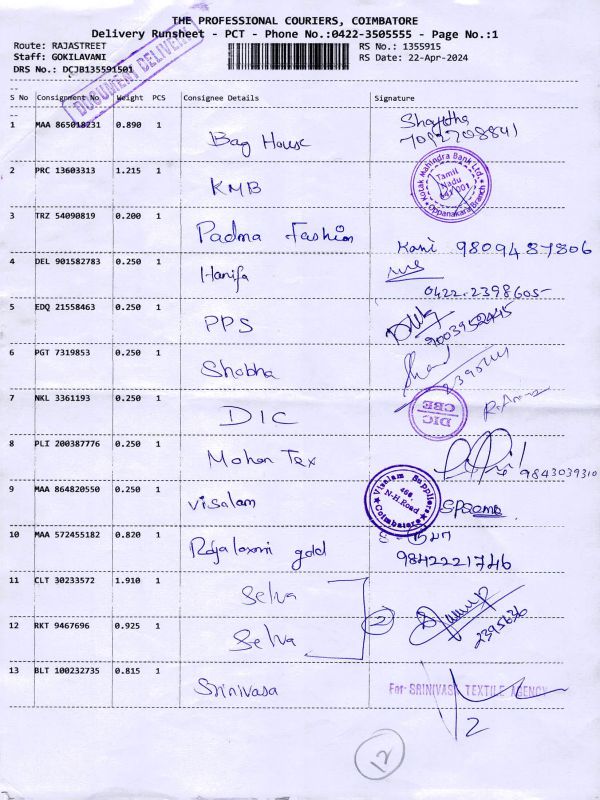 THE PROFESSIONAL COURIERS, COIMBATORE
Delivery Runsheet - PCT - Phone No.:0422-3505555 - Page No.:1
Route: RAJASTREET
Staff: GOKILAVANI
DRS No.: DCJB135591501
RS No.: 1355915
RS Date: 22-Apr-2024
DOCUMENT DELIVERY
S No Consignment No. Weight PCS Consignee Details Signature
1 MAA 865018231 0.890 1 Bag House
7092708841
2 PRC 13603313 1.215 1 KMB
Kotak Mahindra Bank Ltd. Tamil Nadu Oppanakara Branch
3 TRZ 54090819 0.200 1 Padma Fashion Kani 9809487806
4 DEL 901582783 0.250 1 Hanifa
0422-2398605-
5 EDQ 21558463 0.250 1 PPS
9003952445
6 PGT 7319853 0.250 1 Shobha
7 NKL 3361193 0.250 1 DIC DIC CBE
8 PLI 200387776 0.250 1 Mohan Tex 9843039310
9 MAA 864820550 0.250 1 Visalam Visalam Supplies N-H.Road Coimbatore
10 MAA 572455182 0.820 1 Rajalaxmi gold
9842221746
11 CLT 30233572 1.910 1 Selva
2
12 RKT 9467696 0.925 1 Selva 2395636
13 BLT 100232735 0.815 1 Srinivasa For SRINIVASA TEXTILE AGENCY
12